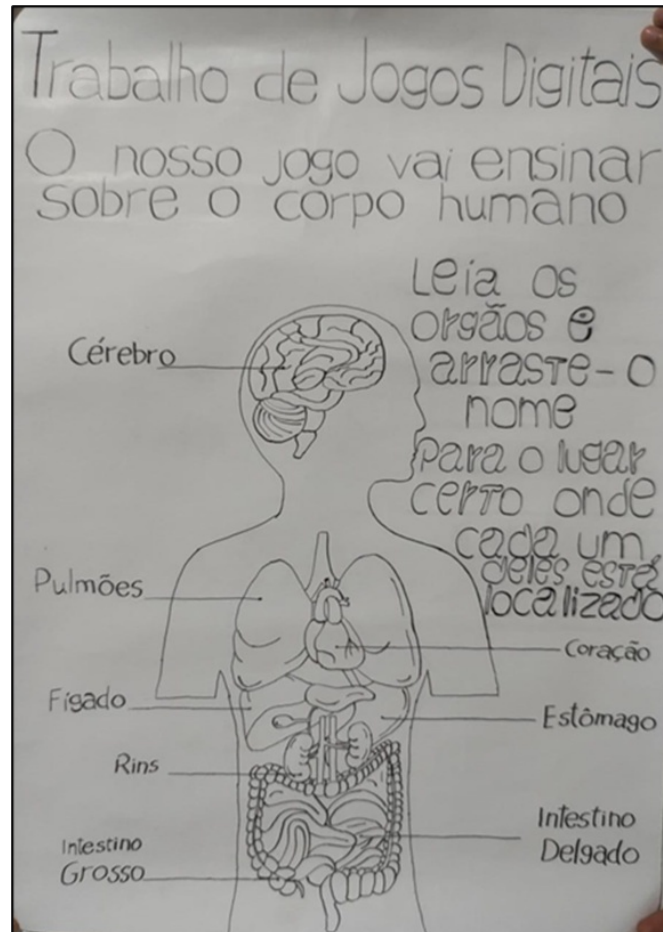 Trabalho de Jogos Digitais
O nosso jogo vai ensinar
sobre o corpo humano
Leia os
orgãos e
arraste-o
nome
para o lugar
certo onde
cada um
deles está
localizado
Cérebro
Pulmões
Coração
Fígado
Estômago
Rins
Intestino
Delgado
Intestino
Grosso